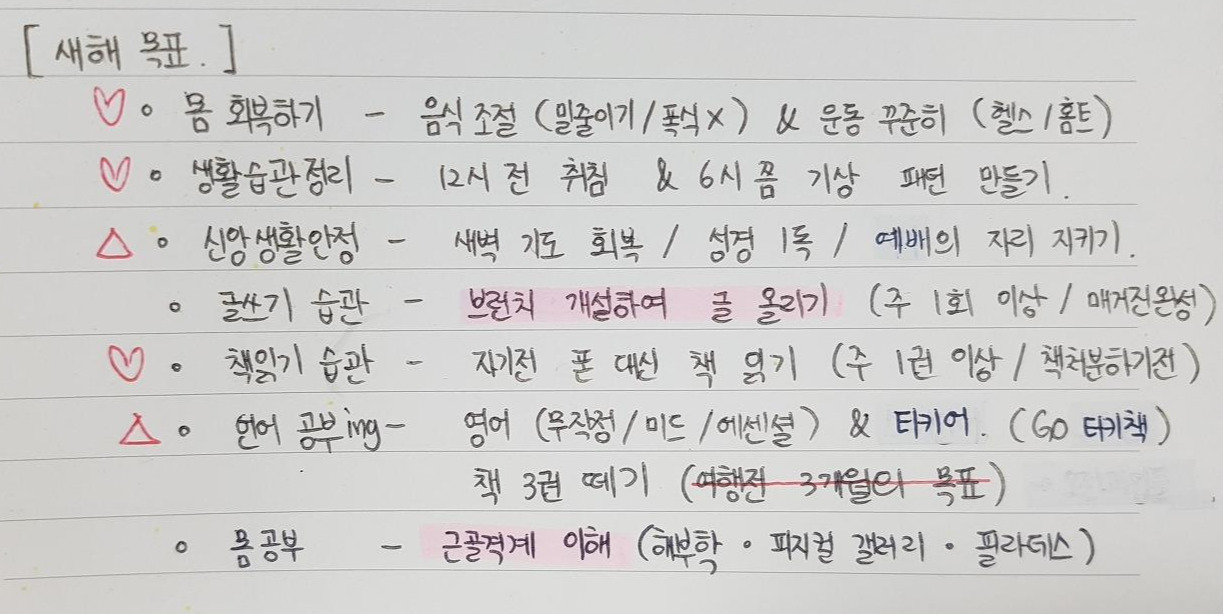 [ 새해 목표. ]
♡ ∘ 몸 회복하기 - 음식 조절 (밀줄이기/폭식X) & 운동 꾸준히 (헬스/홈트)
♡ ∘ 생활습관정리 - 12시 전 취침 & 6시쯤 기상 패턴 만들기.
△ ∘ 신앙생활안정 - 새벽 기도 회복 / 성경 1독 / 예배의 자리 지키기.
∘ 글쓰기 습관 - 브런치 개설하여 글 올리기 (주 1회 이상 / 매거진완성)
♡ ∘ 책읽기 습관 - 자기전 폰 대신 책 읽기 (주 1권 이상 / 책처분하기전)
△ ∘ 언어 공부ing - 영어 (무작정/미드/에센셜) & 터키어. (GO 터키책)
책 3권 떼기 (여행전 3개월의 목표)
∘ 몸공부 - 근골격계 이해 (해부학 · 피지컬 갤러리 · 필라테스)